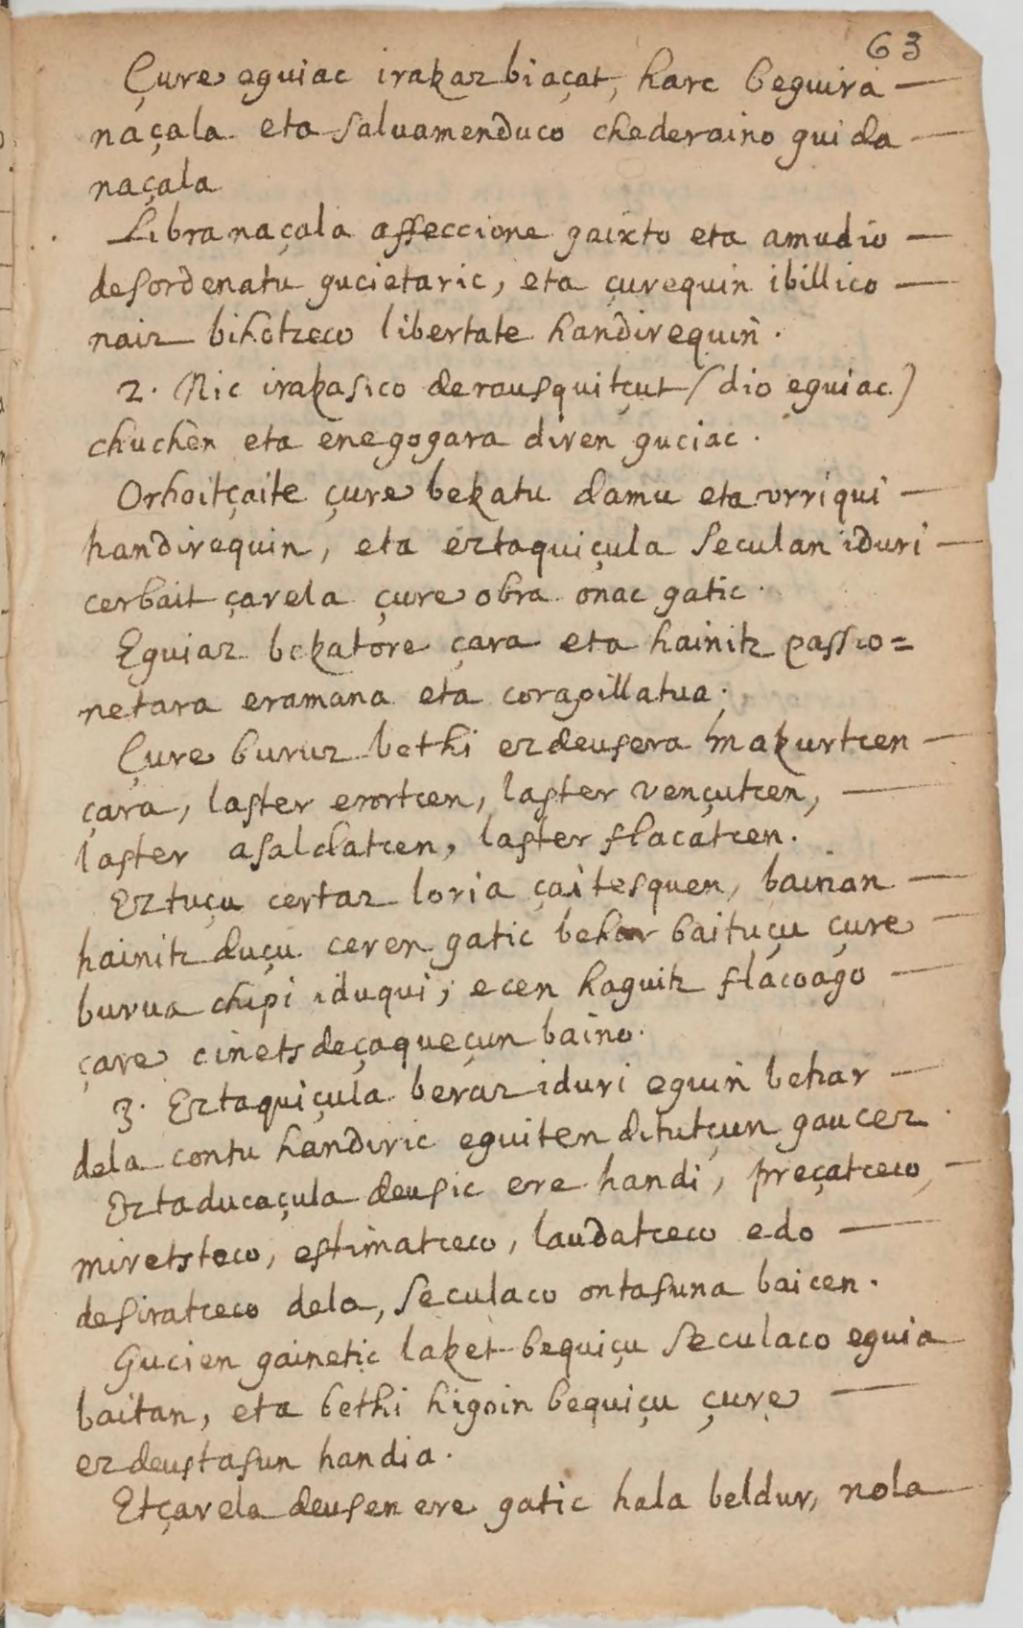 63
Çure eguiac irakaz biaçat, harc beguira —
naçala eta saluamenduco chederaino guida —
naçala
Libra naçala affeccione gaixto eta amudio —
desordenatu gucietaric, eta çurequin ibillico —
naiz bihotzeco libertate handirequin.
2. Nic irakasico derausquitçut (dio eguiac)
chuchen eta ene gogara diren guciac.
Orhoitçaite çure bekatu damu eta vrriqui —
handirequin, eta eztaquiçula seculan iduri —
cerbait çarela çure obra onac gatic.
Eguiaz bekatore çara eta hainitz passio=
netara eramana eta corapillatua.
Çure buruz bethi ezdeusera makurtcen —
çara, laster erortcen, laster vençutcen, —
laster asaldatcen, laster flacatcen.
Eztuçu certaz loria çaitesquen, bainan —
hainitz duçu ceren gatic behar baituçu çure —
burua chipi iduqui; ecen haguitz flacoago —
çare cinets deçaqueçun baino.
3. Eztaquiçula beraz iduri eguin behar —
dela contu handiric eguiten ditutçun gaucez.
Eztaducaçula deusic ere handi, preçatceco, —
miretsteco, estimatceco, laudatceco edo —
desiratceco dela, seculaco ontasuna baicen.
Gucien gainetic laket bequiçu seculaco eguia
baitan, eta bethi higoin bequiçu çure —
ezdeustasun handia.
Etçarela deusen ere gatic hala beldur, nola